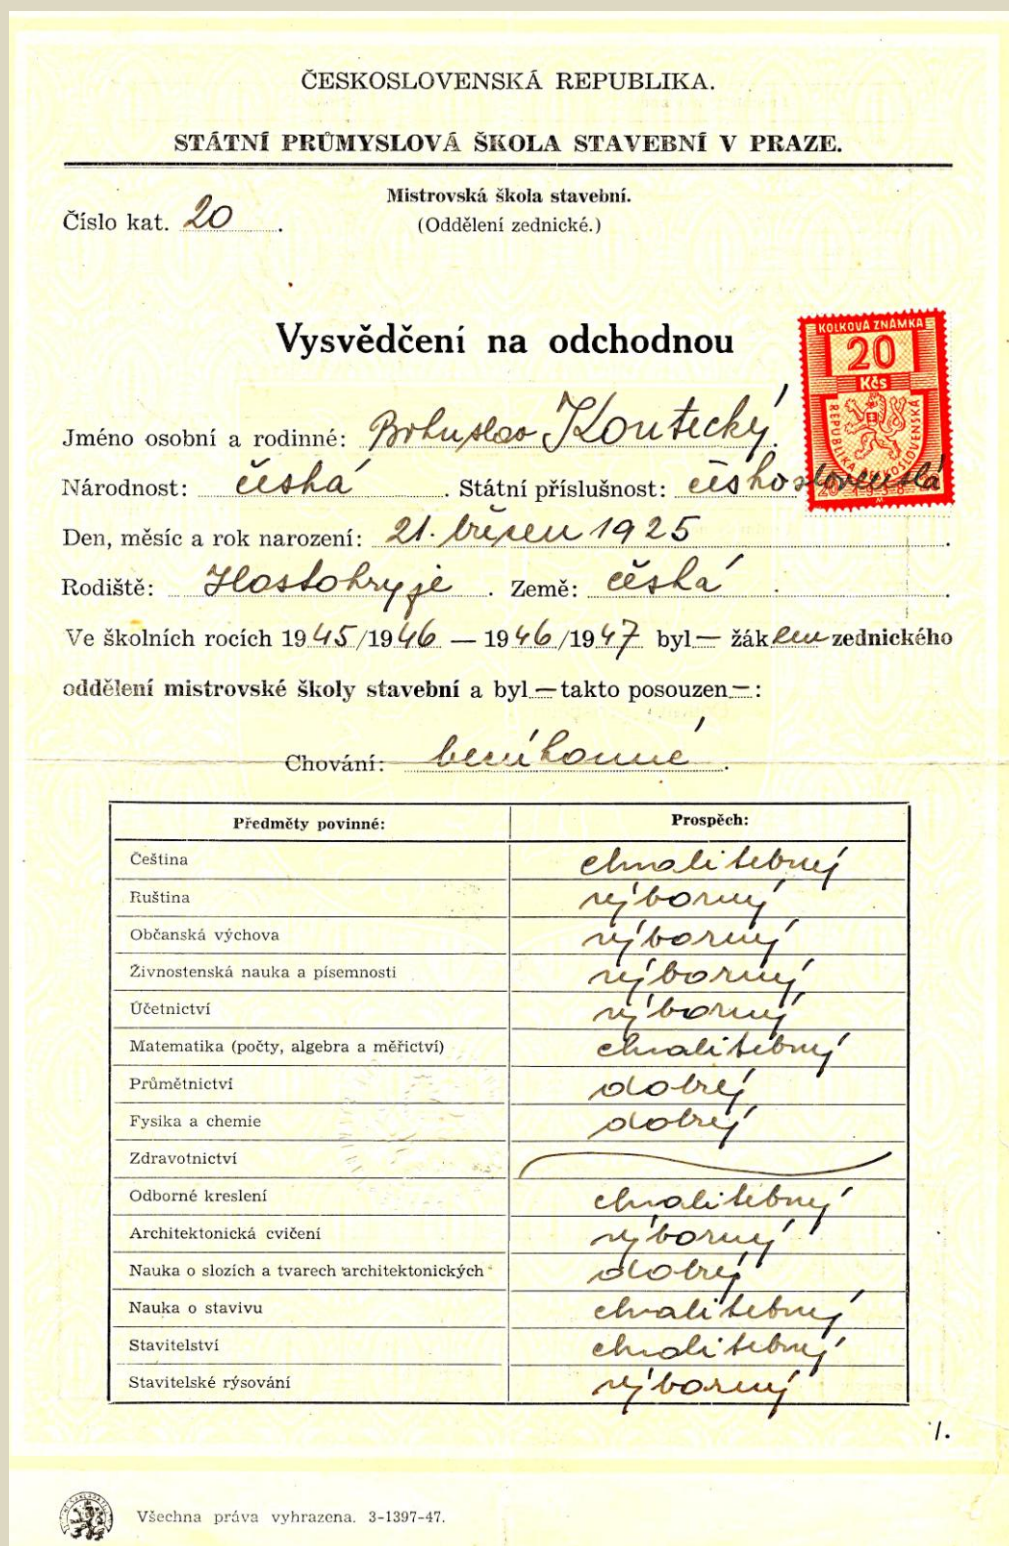 ČESKOSLOVENSKÁ REPUBLIKA.
STÁTNÍ PRŮMYSLOVÁ ŠKOLA STAVEBNÍ V PRAZE.
Mistrovská škola stavební.
Číslo kat. 20.
(Oddělení zednické.)
KOLKOVÁ ZNÁMKA
20
Kčs
REPUBLIKA ČESKOSLOVENSKÁ
Vysvědčení na odchodnou
Jméno osobní a rodinné: Bohuslav Koutecký.
Národnost: česká. Státní příslušnost: československá
Den, měsíc a rok narození: 21. březen 1925.
Rodiště: Hostokryje. Země: česká.
Ve školních rocích 1945/1946 — 1946/1947 byl — žákem zednického
oddělení mistrovské školy stavební a byl — takto posouzen —:
Chování: bezúhonné.
Předměty povinné: Prospěch:
Čeština chvalitebný
Ruština výborný
Občanská výchova výborný
Živnostenská nauka a písemnosti výborný
Účetnictví výborný
Matematika (počty, algebra a měřictví) chvalitebný
Průmětnictví dobrý
Fysika a chemie dobrý
Zdravotnictví
Odborné kreslení chvalitebný
Architektonická cvičení výborný
Nauka o slozích a tvarech architektonických dobrý
Nauka o stavivu chvalitebný
Stavitelství chvalitebný
Stavitelské rýsování výborný
./.
Všechna práva vyhrazena. 3-1397-47.